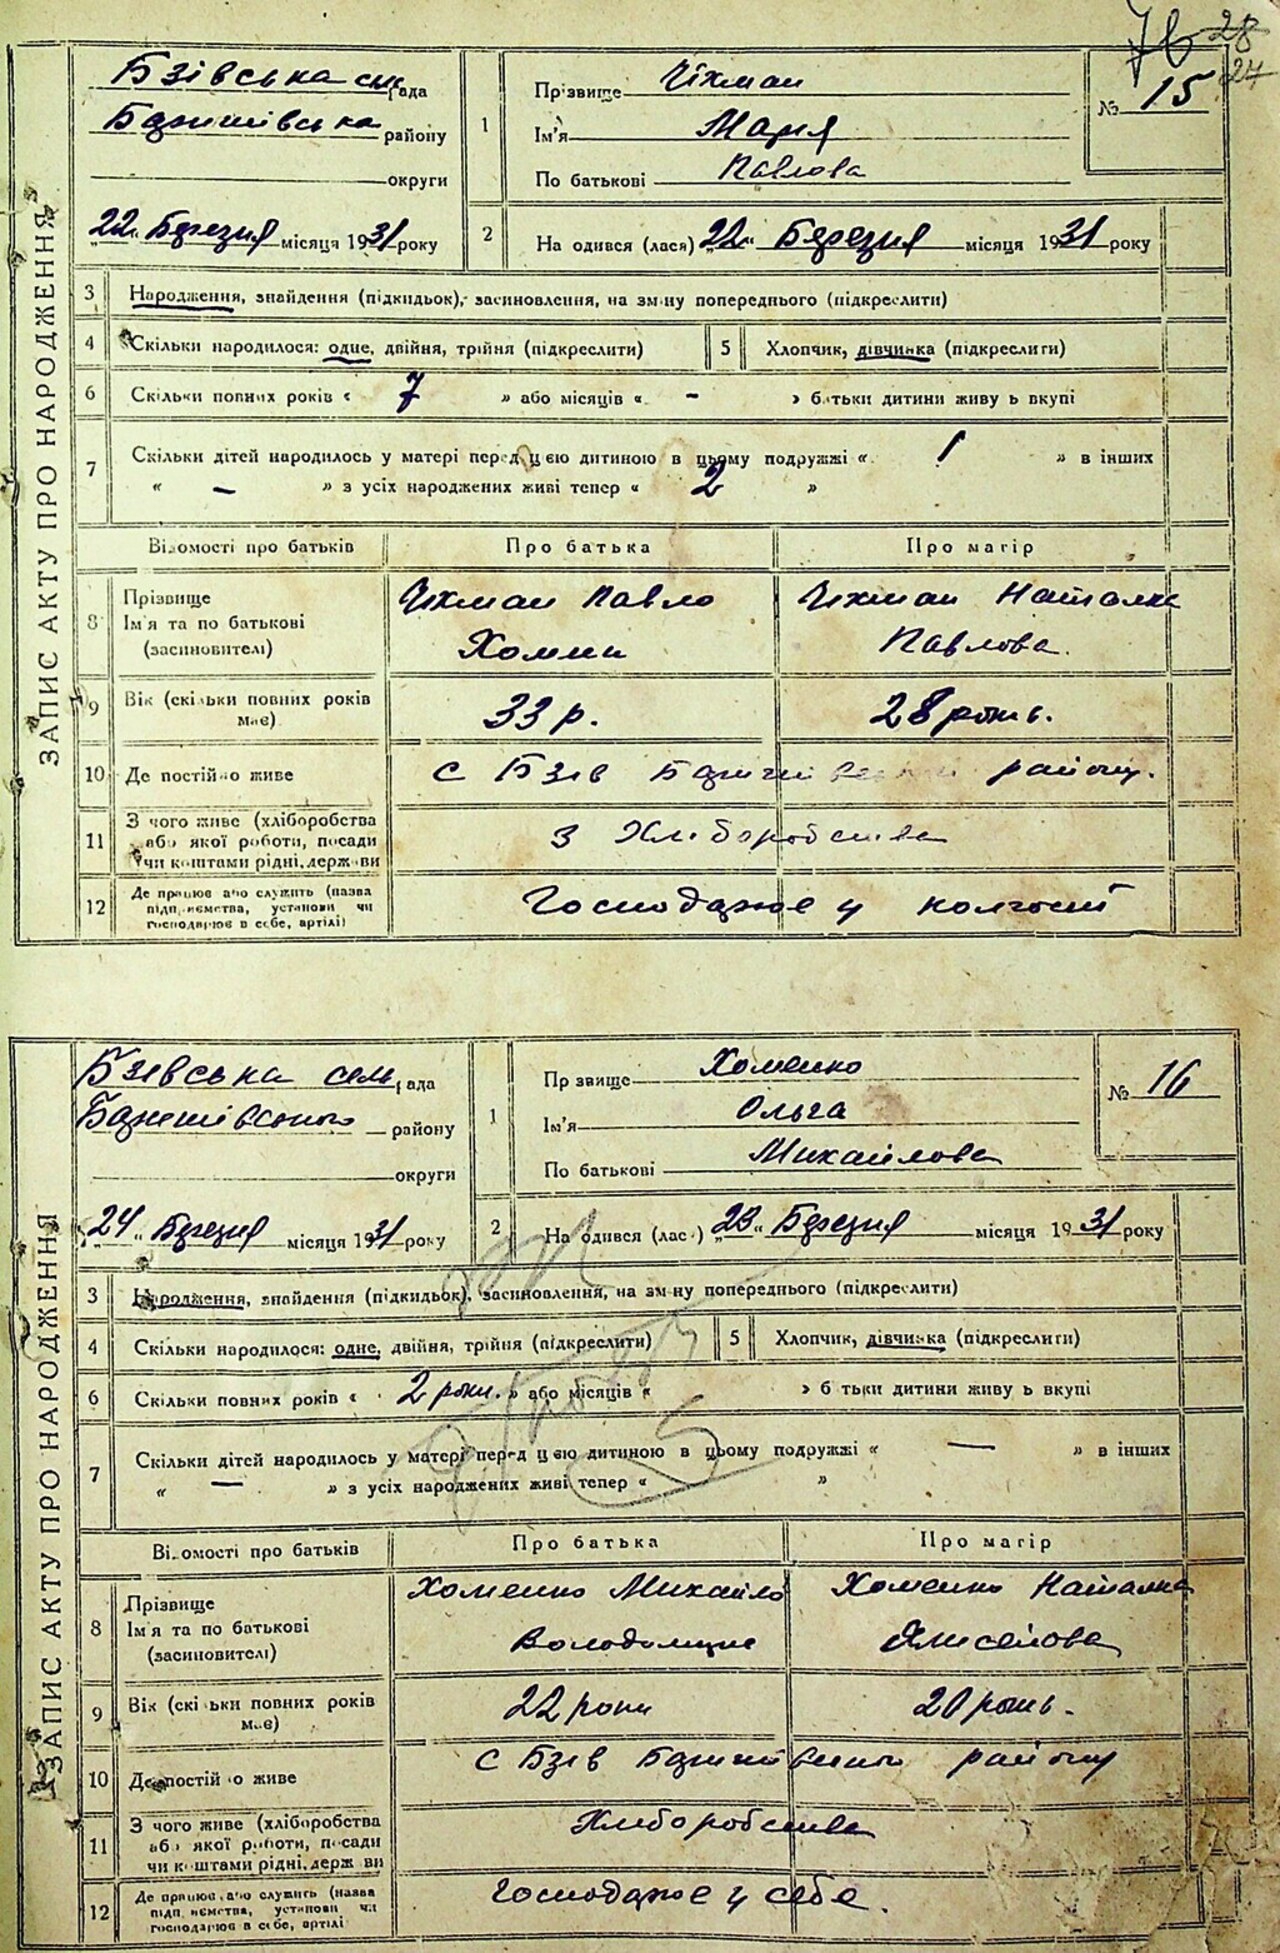 76 28
27
ЗАПИС АКТУ ПРО НАРОДЖЕННЯ
Бзівська сільрада
Баришівська району
округи
„22“ Березня місяця 1931 року
1
Прізвище Чіхман
Ім'я Марія
По батькові Павлова
№ 15
2 На одився (лася) „22“ Березня місяця 1931 року
3 Народження, знайдення (підкидьок), засиновлення, на зміну попереднього (підкреслити)
4 Скільки народилося: одне, двійня, трійня (підкреслити) 5 Хлопчик, дівчинка (підкреслити)
6 Скільки повних років « 7 » або місяців « - » батьки дитини живуть вкупі
7 Скільки дітей народилось у матері перед цією дитиною в цьому подружжі « 1 » в інших
« — » з усіх народжених живі тепер « 2 »
Відомості про батьків Про батька Про матір
8 Прізвище
Ім'я та по батькові
(засиновителі)
Чіхман Павло
Хомин
Чіхман Наталка
Павлова.
9 Вік (скільки повних років має) 33 р. 28 років.
10 Де постійно живе с Бзів район.
11 З чого живе (хліборобства
або якої роботи, посади
чи коштами рідні, держави
З Хліборобства
12 Де працює або служить (назва
підприємства, установи чи
господарює в себе, артілі)
Господарює у колгоспі
ЗАПИС АКТУ ПРО НАРОДЖЕННЯ
Бзівська сельрада
Баришівського району
округи
„24“ Березня місяця 1931 року
1
Прізвище Хоменко
Ім'я Ольга
По батькові Михайлова
№ 16
2 На одився (лас ) „23“ Березня місяця 1931 року
3 Народження, знайдення (підкидьок), засиновлення, на зміну попереднього (підкреслити)
4 Скільки народилося: одне, двійня, трійня (підкреслити) 5 Хлопчик, дівчинка (підкреслити)
6 Скільки повних років « 2 роки. » або місяців « » батьки дитини живуть вкупі
7 Скільки дітей народилось у матері перед цією дитиною в цьому подружжі « — » в інших
« — » з усіх народжених живі тепер « »
Відомості про батьків Про батька Про матір
8 Прізвище
Ім'я та по батькові
(засиновителі)
Хоменко Михайло
Хоменко Наталка
9 Вік (скільки повних років має) 22 роки 20 років.
10 Де постійно живе с Бзів району
11 З чого живе (хліборобства
або якої роботи, посади
чи коштами рідні, держави
Хліборобства
12 Де працює або служить (назва
підприємства, установи чи
господарює в себе, артілі
Господарює у себе.